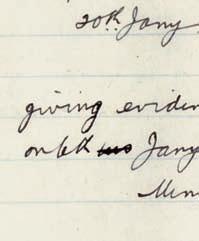 20th Jany
giving eviden
on 6th Jany